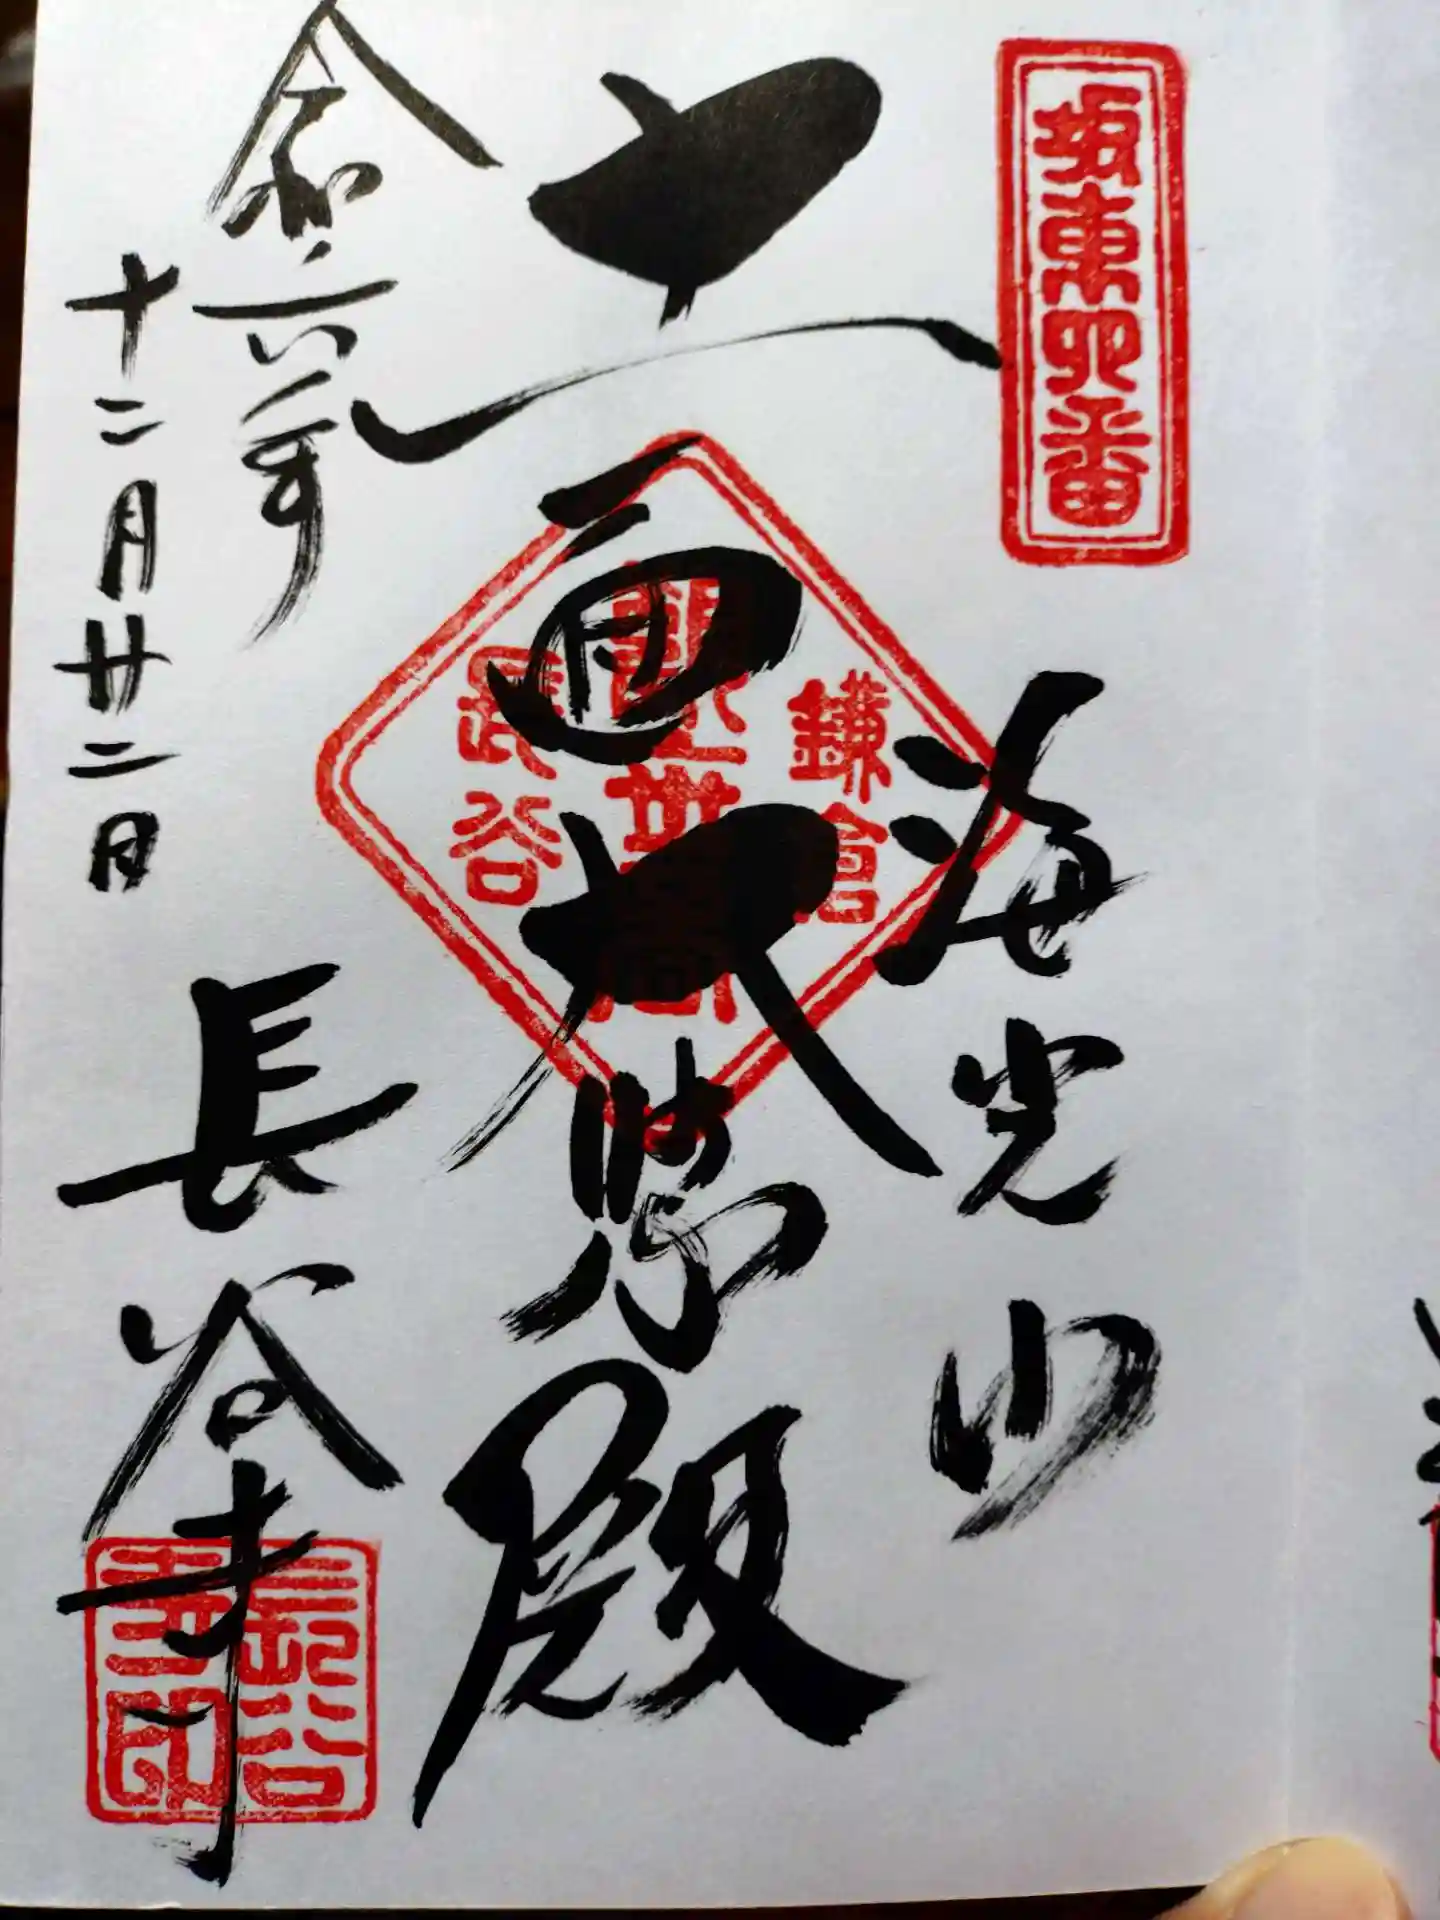 坂東四番
海光山
十一面大悲殿
鎌倉
長谷
令和六年
十二月廿二日
長谷寺
長谷寺印